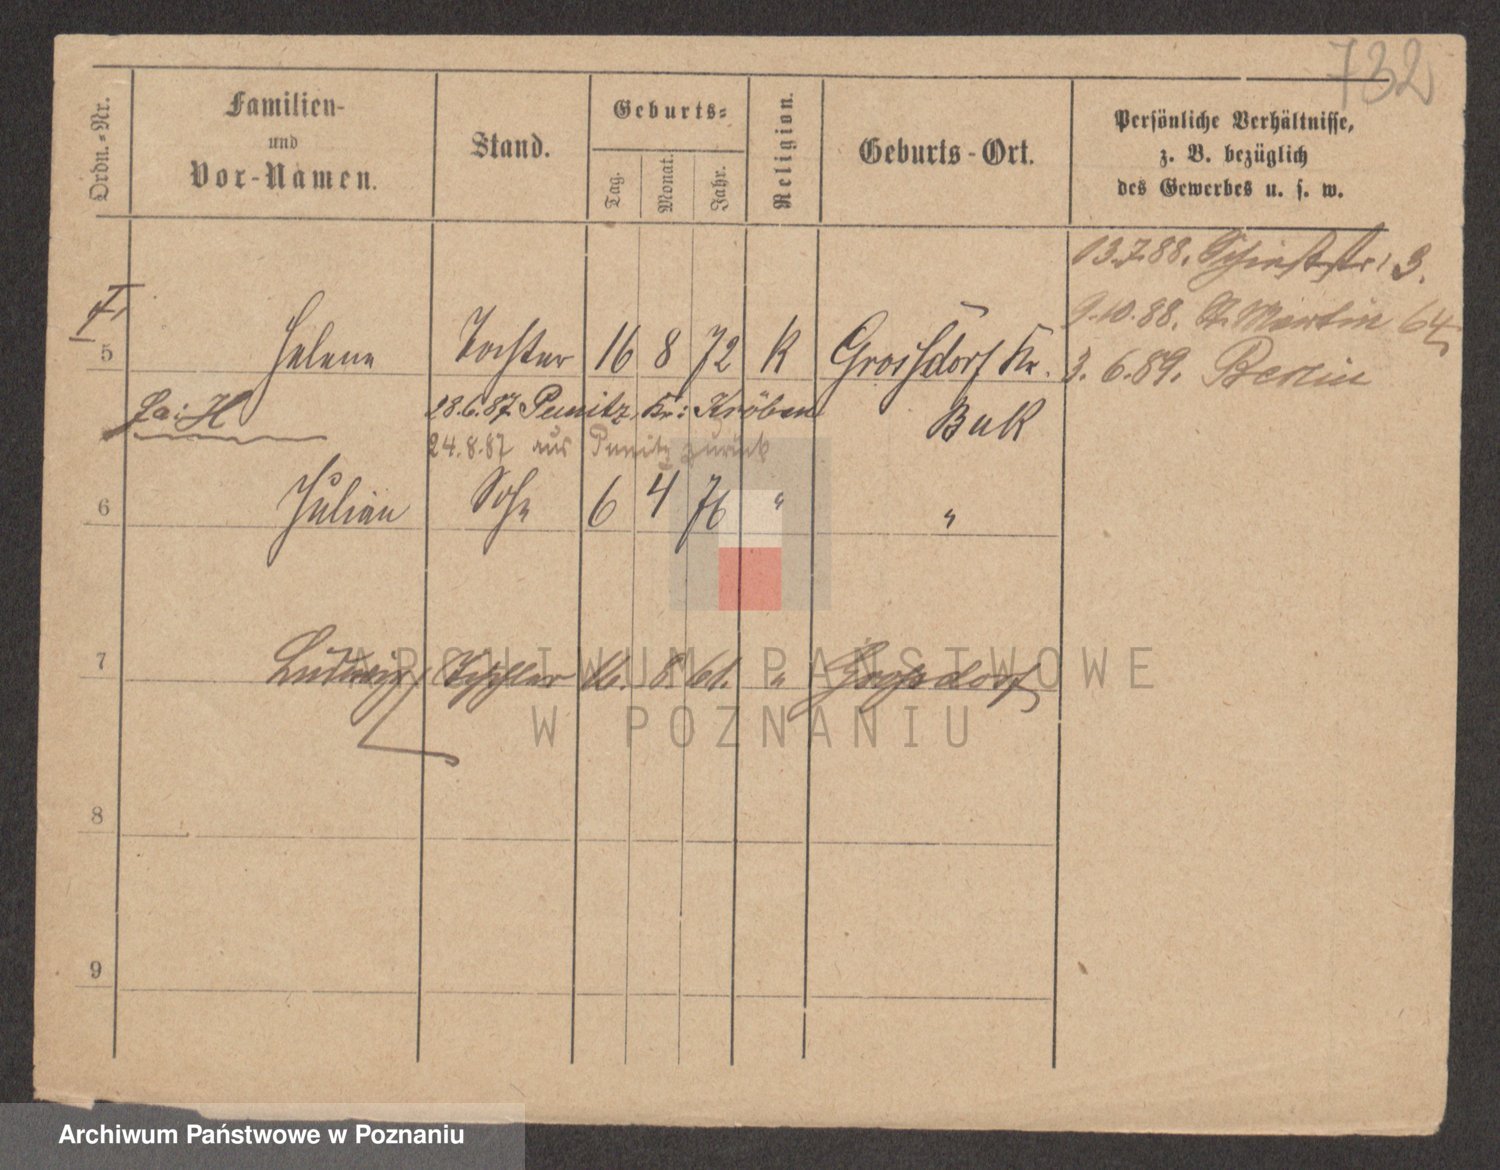 732
Ordn.-Nr.
Familien-
und
Vor-Namen.
Stand.
Geburts-
Tag.
Monat.
Jahr.
Religion.
Geburts-Ort.
Persönliche Verhältnisse,
z. B. bezüglich
des Gewerbes u. s. w.
13.7.88. Schießstr. 3.
9.10.88. St. Martin 64
3. 6.89. Berlin
5 Helene Tochter 16 8 72 K Grossdorf Kr.
28.6.87 Punitz, Kr: Kröben Buk
24.8.87 aus Punitz zurück
6 Julian Sohn 6 4 76 " "
7 Ludwig, 8. 61. " Grossdorf
8
9
ARCHIWUM PAŃSTWOWE
W POZNANIU
Archiwum Państwowe w Poznaniu